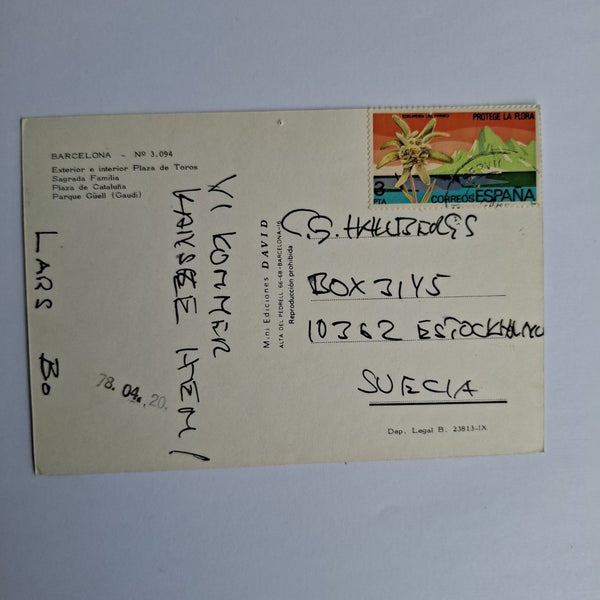 BARCELONA - Nº 3.094
Exterior e interior Plaza de Toros
Sagrada Familia
Plaza de Cataluña
Parque Güell (Gaudi)
VI KOMMER
KANSKE HEM!
LARS BO
78.04.20.
Mini Ediciones DAVID
ALTA DEL PEDRELL 66-68-BARCELONA-16
Reproducción prohibida
PROTEGE LA FLORA
3
PTA
CORREOS ESPAÑA
BOX 3145
10362 ESTOCKHOLMO
SUECIA
Dep. Legal B. 23813-IX